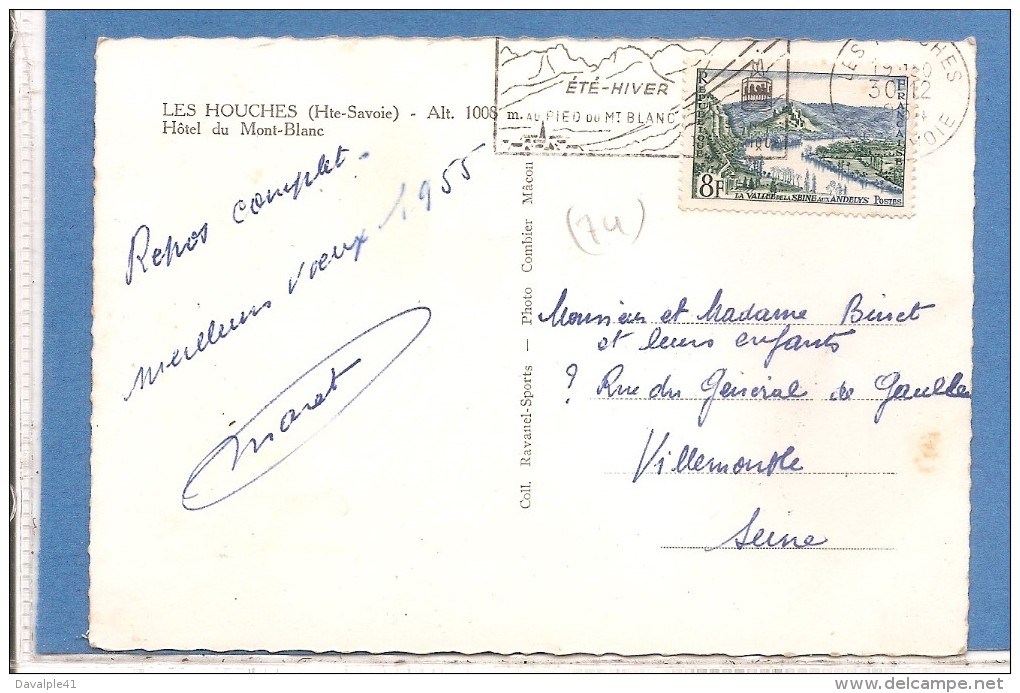 LES HOUCHES (Hte-Savoie) - Alt. 1008 m.
Hôtel du Mont-Blanc
Repos complet.
meilleurs vœux 1955
Coll. Ravanel-Sports — Photo Combier Mâcon
ÉTÉ-HIVER
AU PIED DU MT BLANC
LES HOUCHES
30-12
REPUBLIQUE
FRANÇAISE
8F
LA VALLÉE DE LA SEINE AUX ANDELYS POSTES
(74)
Monsieur et Madame Binet
et leurs enfants
? Rue du Général de Gaulle
Villemomble
Seine
Davalple41
delcampe.net